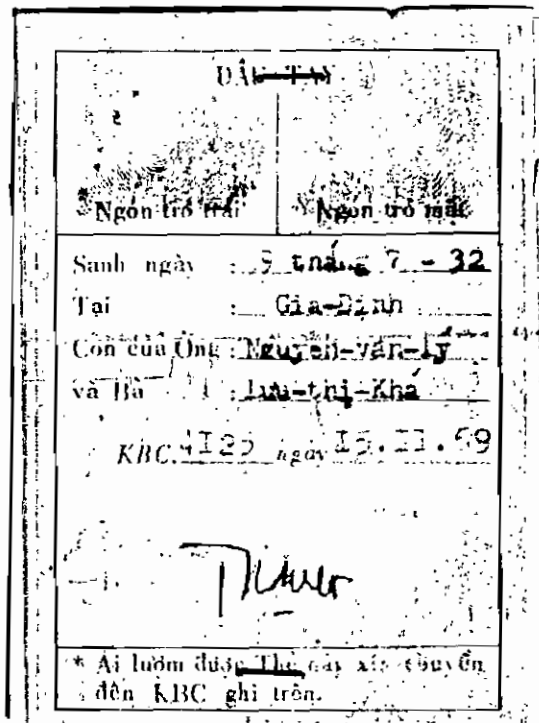 DẤU TAY
Ngón trỏ trái
Ngón trỏ mặt
Sanh ngày : 9 tháng 7 - 32
Tại : Gia-Định
Con của Ông : Nguyễn-văn-lý
và Bà : Lưu-thị-Khá
KBC. 4125 ngày 15.II.69
* Ai lượm được Thẻ này xin chuyển
đến KBC ghi trên.